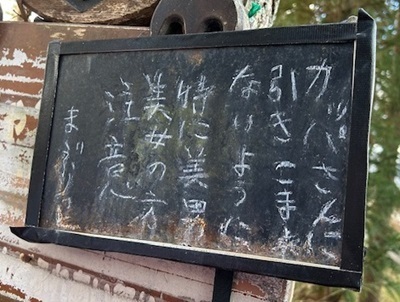 カッパさんに
引きこまれ
ないように
特に美男
美女の方
注意